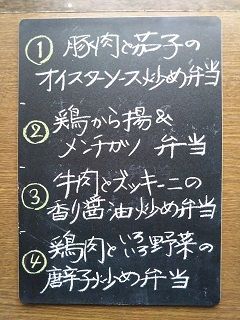 ① 豚肉と茄子の
オイスターソース炒め弁当
② 鶏から揚&
メンチカツ 弁当
③ 牛肉とズッキーニの
香り醤油炒め弁当
④ 鶏肉といろいろ野菜の
唐辛子炒め弁当